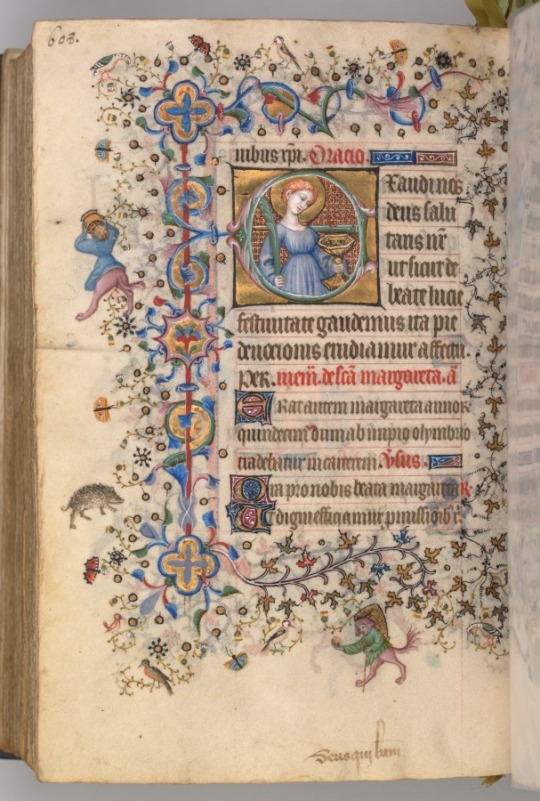 603.
nibus xp̄i. Oratio.
Exaudi nos
deus salu
taris nr̄
ut sicut de
beate lucie
festivitate gaudemus ita pie
devocionis erudiamur affectu.
Per. mem̄. de sc̄a margareta. ā
Erat autem margareta annor
quindecim dum ab impio olymbrio
tradebatur in carcerem. v̄sus.
Ora pro nobis beata margareta R
Ut digni efficiamur pmissioib